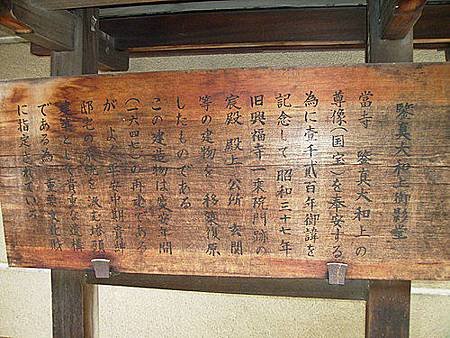 鑒真大和上御影堂
當寺 鑒真大和上の
尊像(国宝)を奉安する
為に壹千貳百年御諱を
記念して 昭和三十七年
旧興福寺一乗院門跡の
宸殿 殿上 公所 玄関
等の建物を 移築復原
したものである
この建造物は慶安年間
(一六四七)の再建である
が よく平安中期貴紳
邸宅の系統を汲む塔頭
建築として貴重な遺構
である為 重要文化財
に指定されている